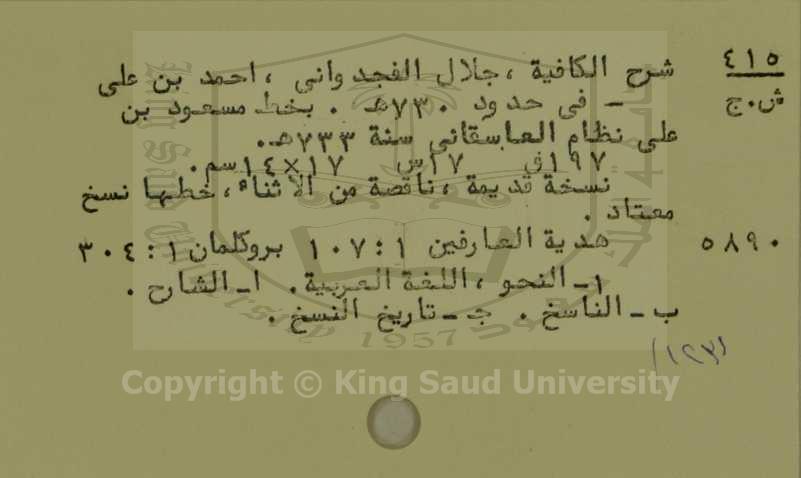 ٤١٥ شرح الكافية ، جلال الفجدواني ، احمد بن على
ش.ج - فى حدود ٧٣٠هـ . بخط مسعود بن
على نظام العاسقاني سنة ٧٣٣هـ.
١٩٧ق ١٧س ١٧×١٤سم.
نسخة قديمة ، ناقصة من الأثناء ، خطها نسخ
معتاد .
٥٨٩٠ هدية العارفين ١ : ١٠٧ بروكلمان ١ : ٣٠٤
١ـ النحو ، اللغة العربية . ا ـ الشارح .
ب ـ الناسخ . ج ـ تاريخ النسخ .
(١٢٣)
1957
Copyright © King Saud University